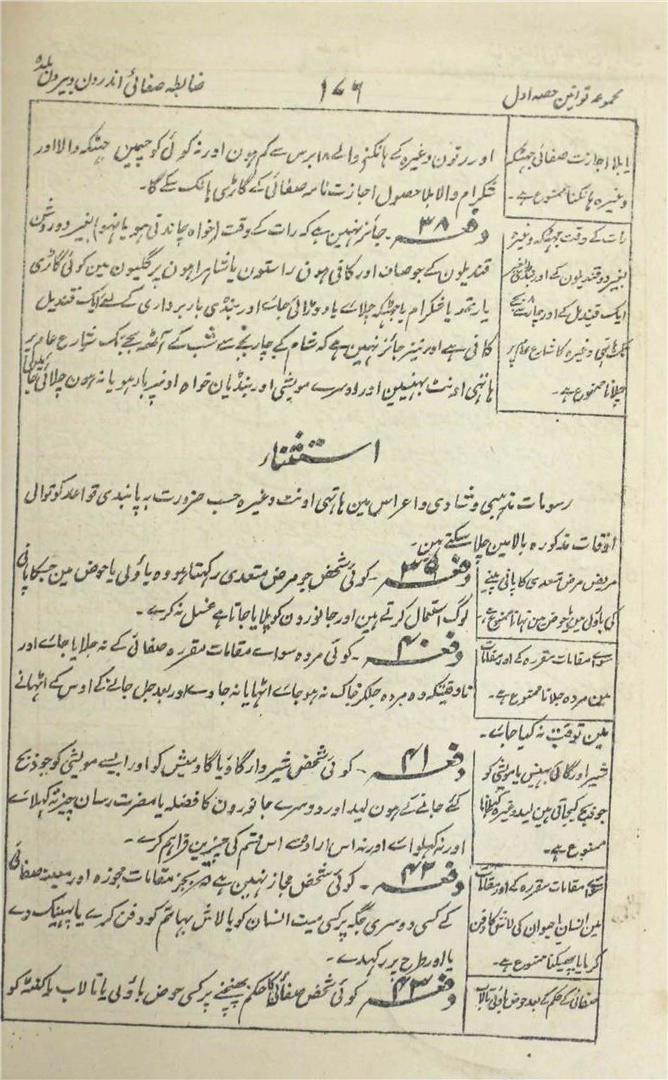 مجموعہ قوانین حصہ اول
۱۷۶
ضابطہ صفائی اندرون و بیرون بلدہ
بلا اجازت صفائی جھٹکہ
وغیرہ ہانکنا ممنوع ہے۔
اور رتھون وغیرہ کے ہانکنے والے ۱۸ برس سے کم ہون اور نہ کوئی کوچمین جھٹکہ والا اور
شکرام والا بلا حصول اجازت نامہ صفائی کے گاڑی ہانک سکے گا۔
رات کے وقت جھٹکہ وغیرہ
بغیر دو قندیلون کے اور بنڈی بغیر
ایک قندیل کے اور چار بجے سے ۸ بجے
تک ہاتھی وغیرہ کا شارع عام پر
چلانا ممنوع ہے۔
دفعہ ۳۸۔ جائز نہین ہے کہ رات کے وقت (خواہ چاندنی ہو یا نہو) بغیر دو روشن
قندیلون کے جو صاف اور کافی ہون راستون یا شاہراہون پر گلیون مین کوئی گاڑی
یا رتھ یا شکرام یا جھٹکہ چلاے یا دوڑائی جاے اور بنڈی باربرداری کے لئے ایک قندیل
کافی ہے اور نیز جائز نہین ہے کہ شام کے چار بجے سے شب کے آٹھ بجے تک شارع عام پر
ہاتھی اونٹ بھینسین اور دوسرے مویشی اور بنڈیان خواہ اونپر بار ہو یا نہ ہون چلائی جائین
استثناء
رسومات مذہبی و شادی و اعراس مین ہاتھی اونٹ وغیرہ حسب ضرورت بہ پابندی قواعد کوتوالی
اوقات مذکورہ بالا مین چلا سکتے ہین۔
مریض مرض متعدی کا پانی پینے
کی باؤلی مین یا حوض مین نہانا ممنوع ہے۔
دفعہ ۳۹۔ کوئی شخص جو مرض متعدی رکھتا ہو وہ باؤلی یا حوض مین جسکا پانی
لوگ استعمال کرتے ہین اور جانورون کو پلایا جاتا ہے غسل نہ کرے۔
سواے مقامات مقررہ کے اور مقامات
مین مردہ جلانا ممنوع ہے۔
دفعہ ۴۰۔ کوئی مردہ سواے مقامات مقررہ صفائی کے نہ جلایا جاے اور
تاوقتیکہ وہ مردہ جلکر خاک نہ ہو جاے اٹھایا نہ جاوے اور بعد جل جانے کے اوس کے اٹھانے
مین توقف نہ کیا جاے۔
شیر اور گائی بھینس یا مویشی کو
جو ذبح کیجاتی ہین لید وغیرہ کھلانا
ممنوع ہے۔
دفعہ ۴۱۔ کوئی شخص شیردار گاؤ یا گاومیش کو اور ایسے مویشی کو جو ذبح
کئے جانے کے ہون لید اور دوسرے جانورون کا فضلہ یا مضرت رسان چیز نہ کھلاے
اور نہ کہلواے اور نہ اس ارادہ سے اس قسم کی چیزین فراہم کرے۔
سواے مقامات مقررہ کے اور مقامات
مین انسان یا حیوان کی لاش کا دفن
کرنا یا پھینکنا ممنوع ہے۔
دفعہ ۴۲۔ کوئی شخص مجاز نہین ہے کہ بجز مقامات مجوزہ اور معینہ صفائی
کے کسی دوسری جگہ پر کسی میت انسان کو یا لاش بہائم کو دفن کرے یا پھینک دے
یا اور طرح پر رکھدے۔
صفائی کے حکم کے بعد حوض باؤلی تالاب
دفعہ ۴۳۔ کوئی شخص صفائی کا حکم پہنچنے پر کسی حوض باؤلی یا تالاب یا کنٹہ کو